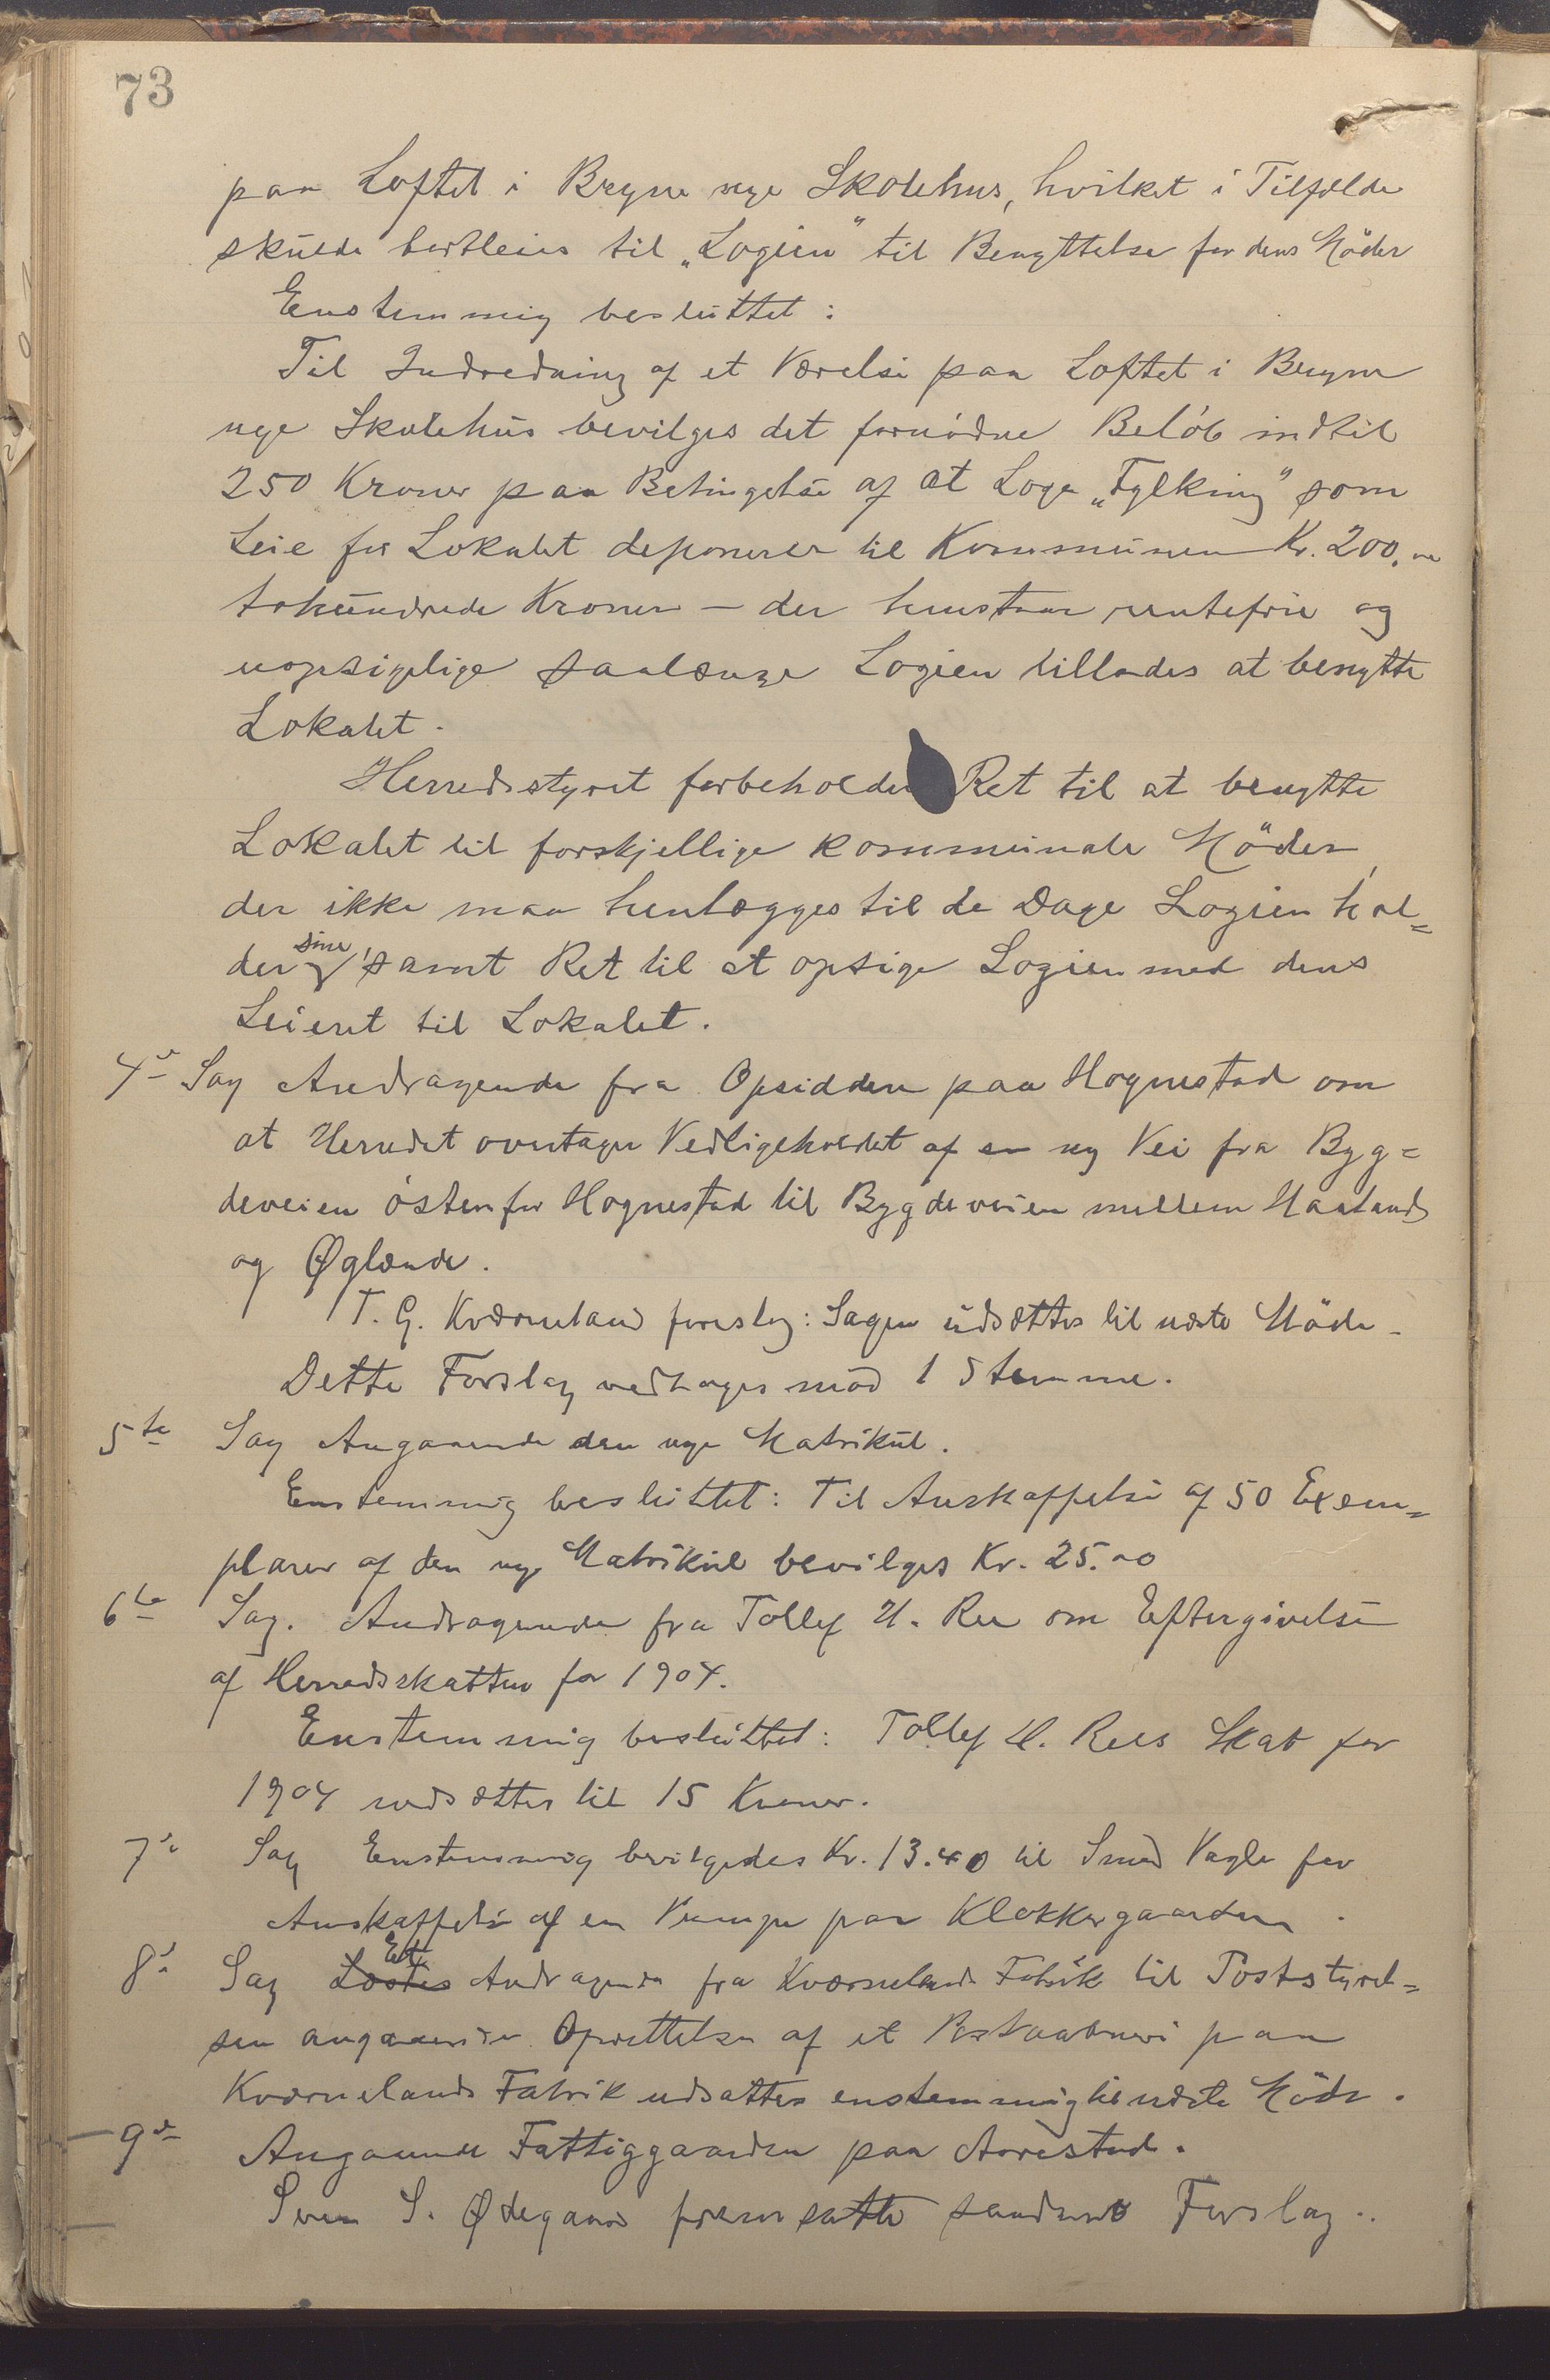 73
paa Loftet i Bryne nye Skolehus, hvilket i Tilfælde
skulde bortleies til „Logien" til Benyttelse for dens Möder
Enstemmig besluttet:
Til Indredning af et Værelse paa Loftet i Bryne
nye Skolehus bevilges det fornödne Belöb indtil
250 Kroner paa Betingelse af at Loge „Fylking" som
Leie for Lokalet deponerer til Kommunen Kr. 200.00
tohundrede Kroner – der henstaar rentefrie og
uopsigelige saalænge Logien tillades at benytte
Lokalet.
Herredsstyret forbeholder Ret til at benytte
Lokalet til forskjellige kommunale Möder,
der ikke maa henlægges til de Dage Logien hol=
der sine, samt Ret til at opsige Logien med dens
Leieret til Lokalet.
4de Sag Andragende fra Opsidderne paa Hognestad om
at Herredet overtager Vedligeholdet af en ny Vei fra Byg=
deveien östenfor Hognestad til Bygdeveien mellem Haaland
og Øglænde.
T. G. Kværneland foreslog: Sagen udsættes til næste Möde.
Dette Forslag vedtoges mod 1 Stemme.
5te Sag Angaaende den nye Matrikul.
Enstemmig besluttet: Til Anskaffelse af 50 Exem=
plarer af den nye Matrikul bevilges Kr. 25.00
6te Sag. Andragende fra Tollef H. Ree om Eftergivelse
af Herredsskatten for 1904.
Enstemmig besluttet: Tollef H. Rees Skat for
1904 nedsættes til 15 Kroner.
7de Sag Enstemmig bevilgedes Kr. 13.40 til Smed Vagle for
Anskaffelse af en Pumpe paa Klokkergaarden.
8de Sag Et Andragende fra Kværnelands Fabrik til Poststyrel=
sen angaaende Oprettelse af et Postaabneri paa
Kværnelands Fabrik udsattes enstemmig til næste Möde.
9de Angaaende Fattiggaarden paa Aarestad.
Sven S. Ødegaard fremsatte saadant Forslag: